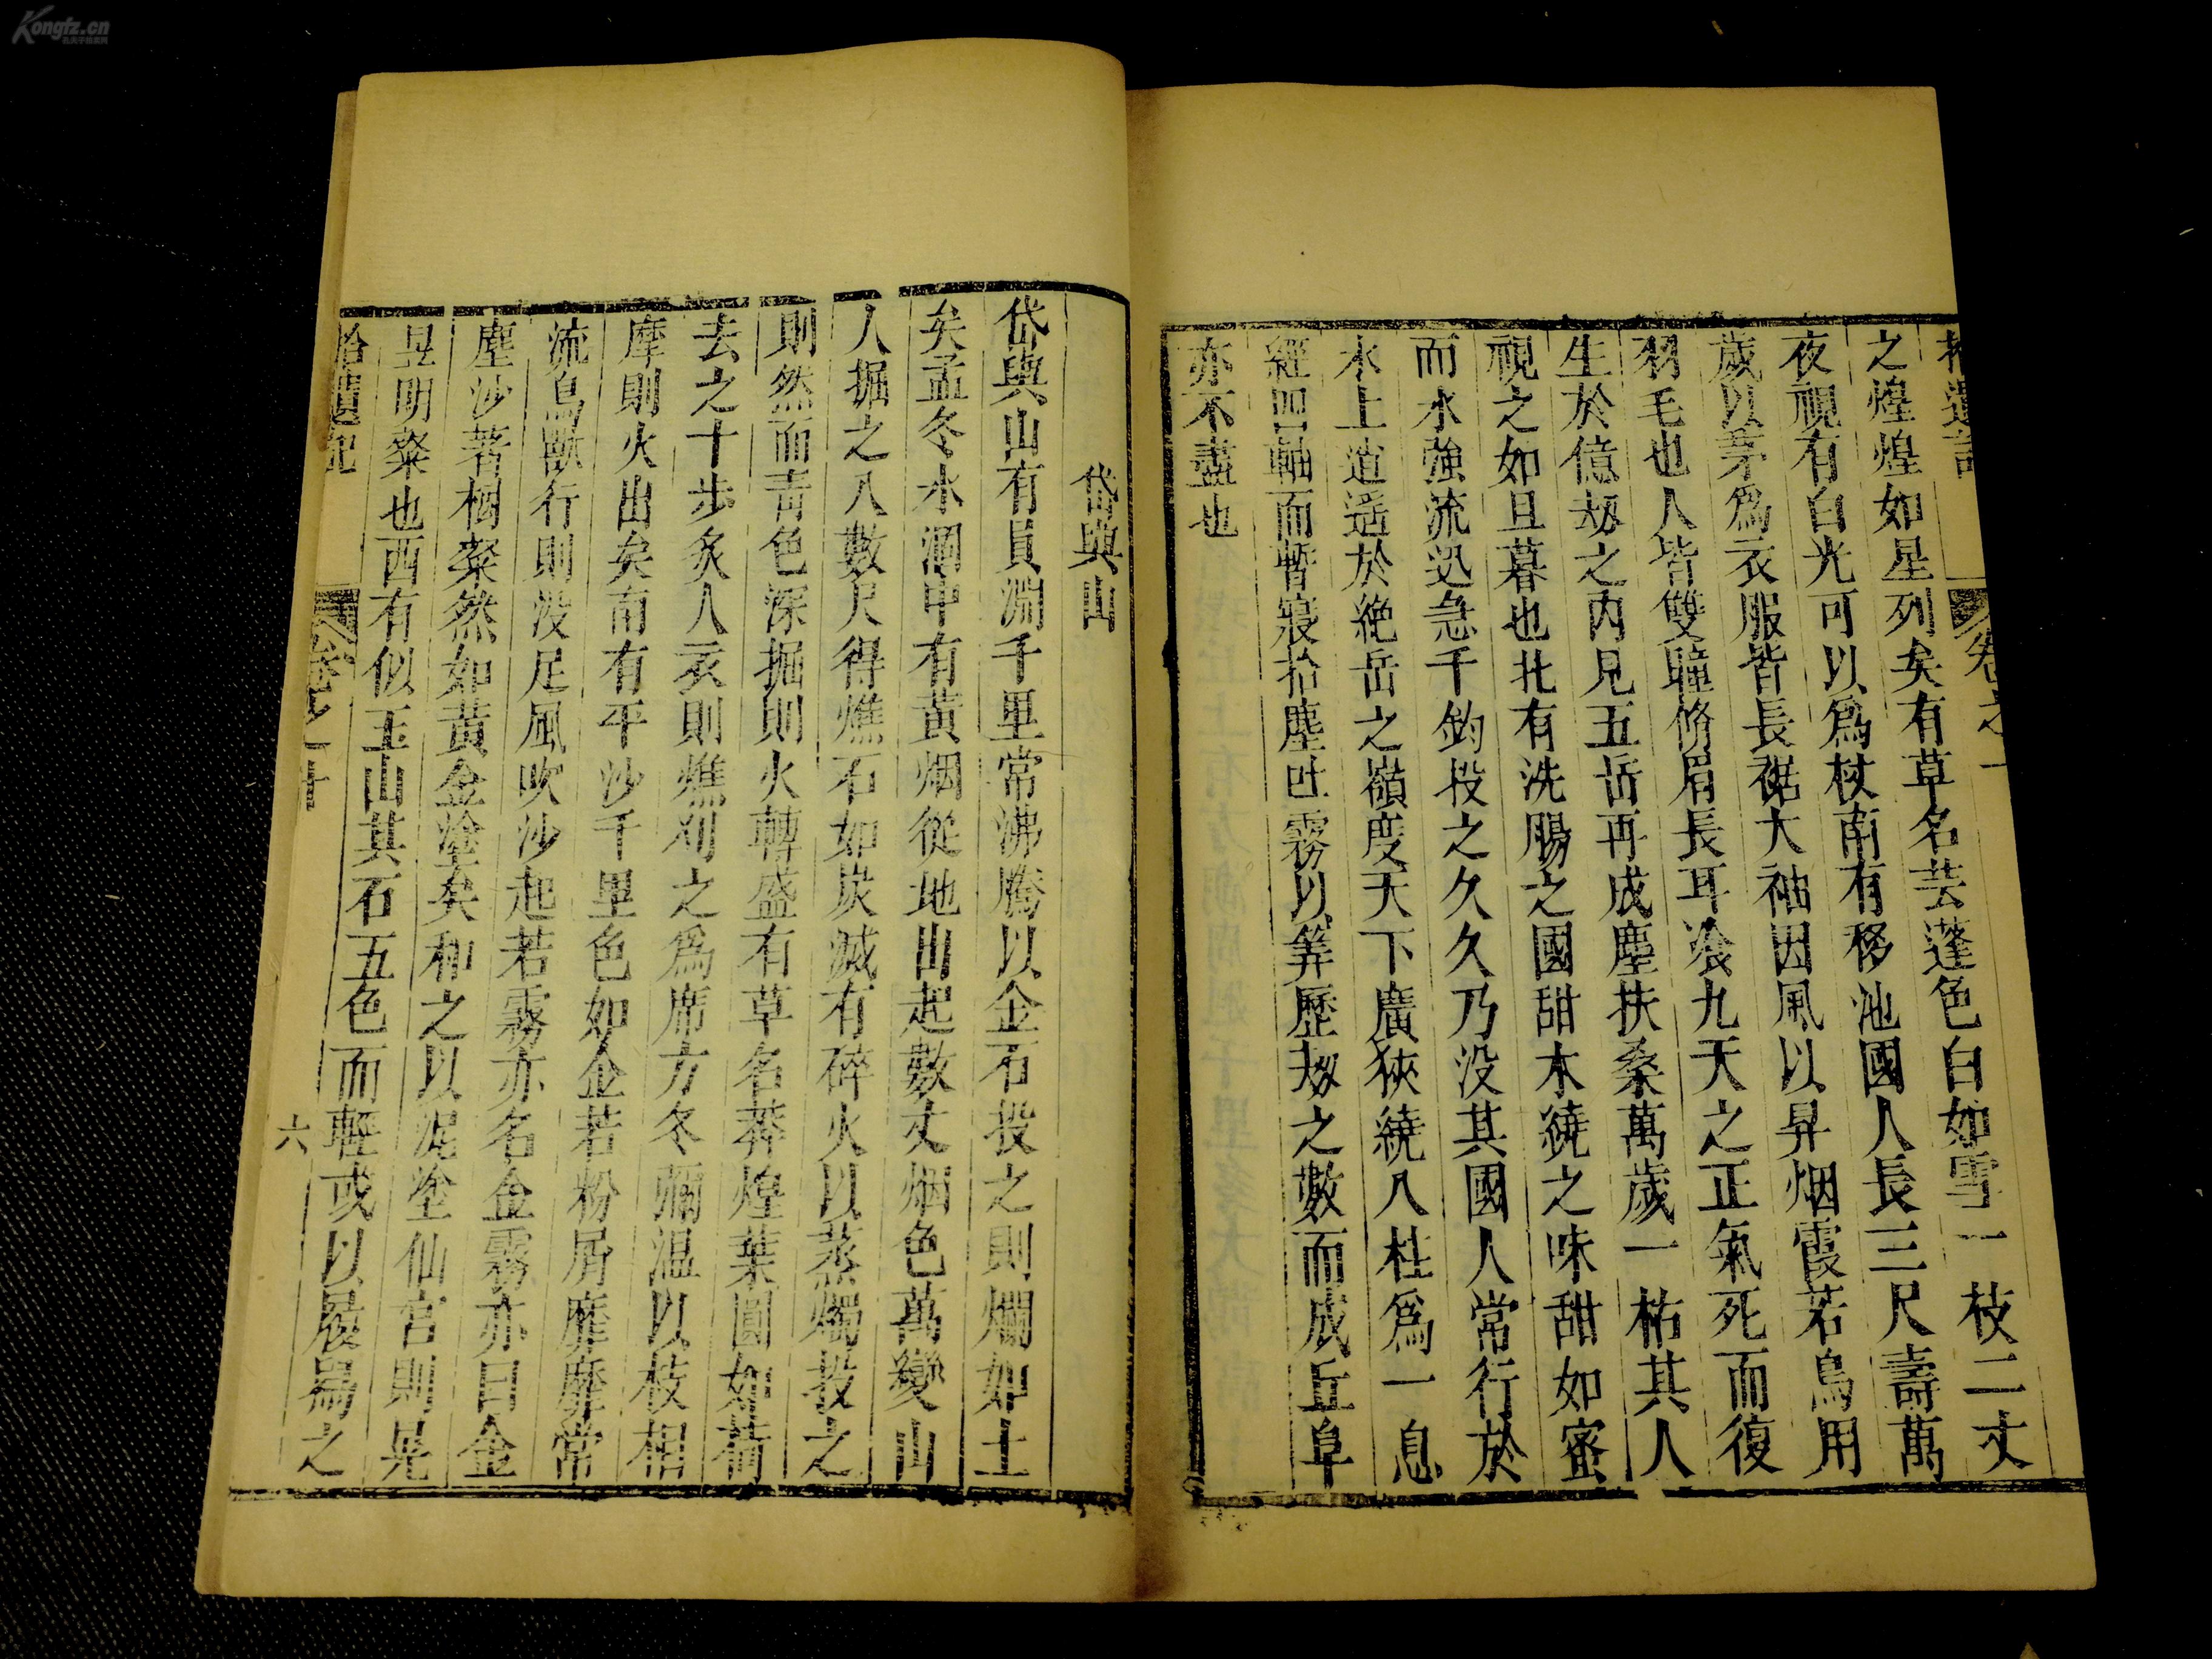 Kongfz.cn
拾遺記 卷之十
之煌煌如星列矣有草名芸蓬色白如雪一枝二丈
夜視有白光可以爲杖南有移池國人長三尺壽萬
歲以茅爲衣服皆長裾大袖因風以昇烟霞若鳥用
羽毛也人皆雙瞳脩眉長耳飡九天之正氣死而復
生於億刼之内見五岳再成塵扶桑萬歲一枯其人
視之如旦暮也北有浣腸之國甜水繞之味甜如蜜
而水強流迅急千鈞投之久久乃没其國人常行於
水上逍遥於絶岳之嶺度天下廣狹繞八柱爲一息
經四軸而暫寢拾塵吐霧以筭歷刼之數而成丘阜
亦不盡也
岱輿山
岱輿山有員淵千里常沸騰以金石投之則爛如土
矣孟冬水涸中有黃烟從地出起數丈烟色萬變山
人掘之入數尺得燋石如炭滅有碎火以蒸燭投之
則然而青色深掘則火轉盛有草名莽煌葉圓如荷
去之十步炙人衣則燋刈之爲席方冬彌温以枝相
摩則火出矣南有平沙千里色如金若粉屑靡靡常
流鳥獸行則没足風吹沙起若霧亦名金霧亦曰金
塵沙著樹粲然如黃金塗矣和之以泥塗仙宫則晃
昱明粲也西有似玉山其石五色而輕或以履爲之
拾遺記 卷之十 六